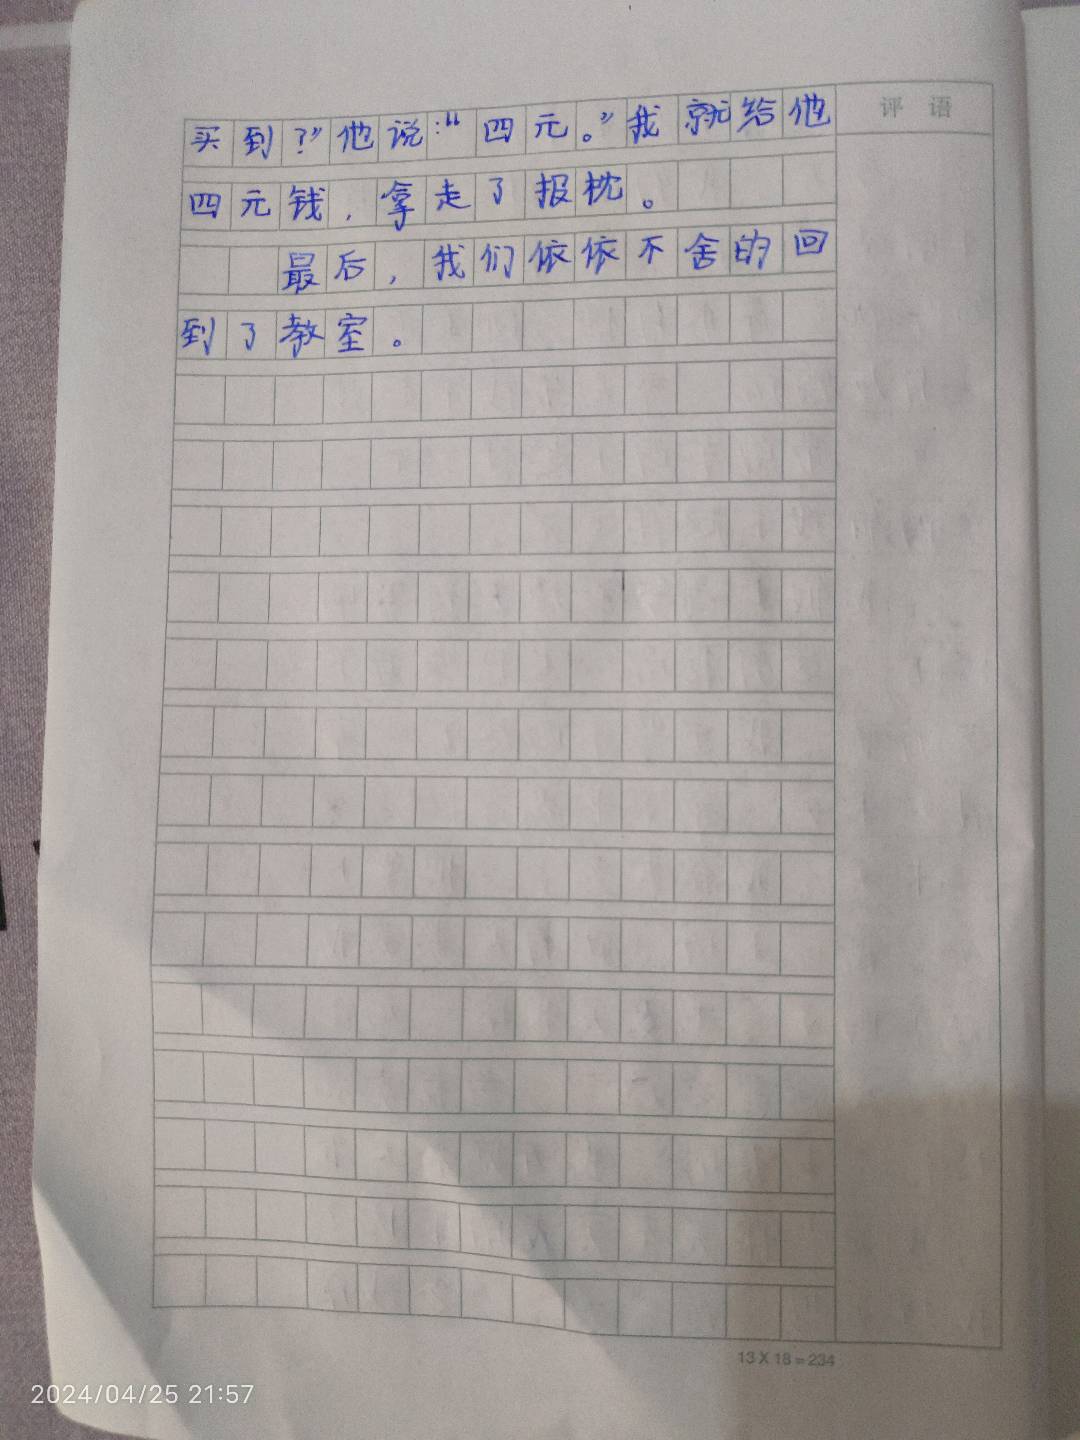 评 语
买到？”他说：“四元。”我就给他
四元钱，拿走了报枕。
最后，我们依依不舍的回
到了教室。
13 X 18 = 234
2024/04/25 21:57